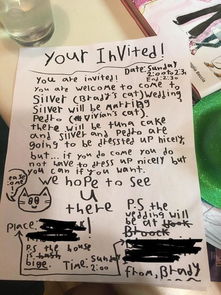 your Invited!
Date: Sunday
2:00 to 2:30
End: 2:30
You are invited!
You are welcome to come to
Silver (Brady's cat) wedding
Silver will be marring
Pedro (Vivian's cat).
there will be tuna cake
and silver and Pedro are
going to be dressed up nicely,
but... if you do come you do
not have to dress up nicely but
you can if you want.
We hope to see
u
there
Place:
P.S the house
is
bige.
Time: Sunday
2:00
P.S the
wedding will
be at
Brock
from, Brady